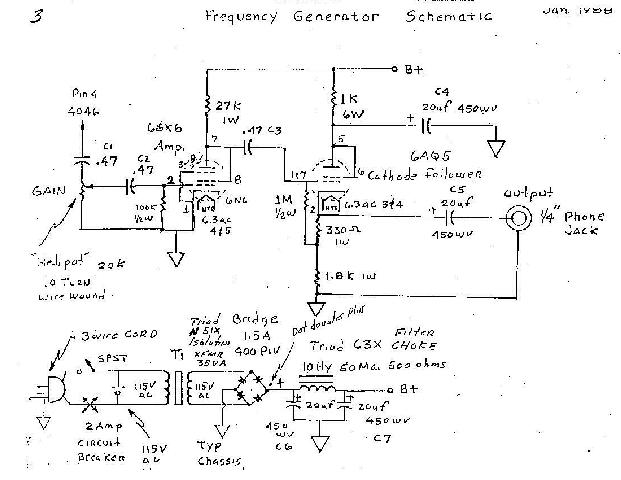 3
Frequency Generator Schematic
Pin 4
4046
C1
.47
C2
.47
GAIN
20K
10 TURN
Wire Wound
Amp.
27K
1W
7
.47 C3
8
2
1
100K
1/2W
6.3ac
4+5
B+
1K
6W
5
6
1+7
1M
1/2W
2
6.3ac 3+4
330Ω
1W
1.8K 1W
6AQ5
Cathode Follower
C4
+
20uf 450WV
C5
20uf
+
450WV
output
1/4" Phone
Jack
3 wire CORD
SPST
2 Amp
CIRCUIT
Breaker
115V
ac
115V
ac
T1
Triad
N51X
Isolation
XFMR
35VA
115V
ac
Bridge
1.5A
400 PIV
Typ
Chassis
Dot denotes plus
+
Triad C3X Filter
CHOKE
10Hy 50Ma 500 ohms
B+
+
20uf
450
WV
C6
+
20uf
450WV
C7